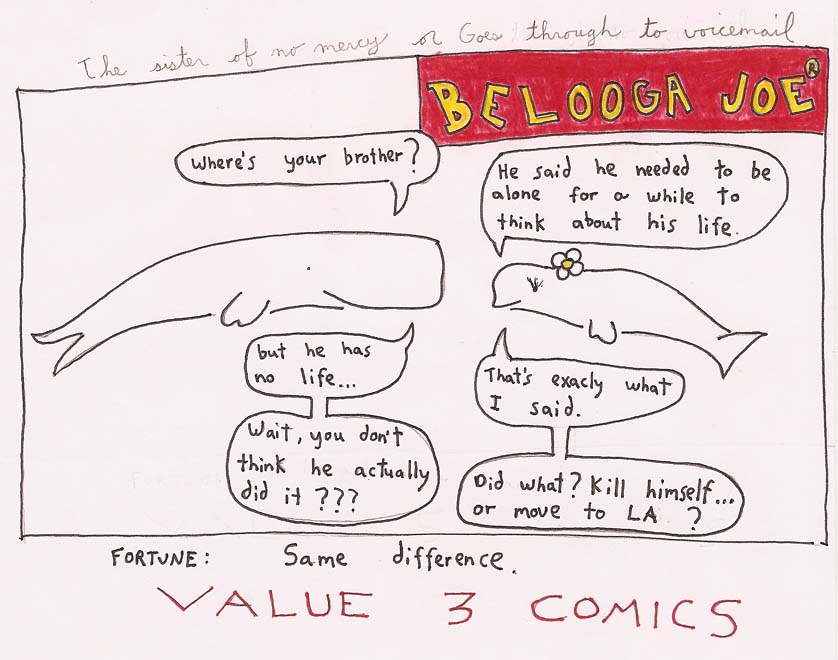 The sister of no mercy or Goes through to voicemail
BELOOGA JOE®
Where's your brother?
He said he needed to be
alone for a while to
think about his life.
but he has
no life...
Wait, you don't
think he actually
did it ???
That's exacly what
I said.
Did what? Kill himself...
or move to LA ?
FORTUNE: Same difference.
VALUE 3 COMICS